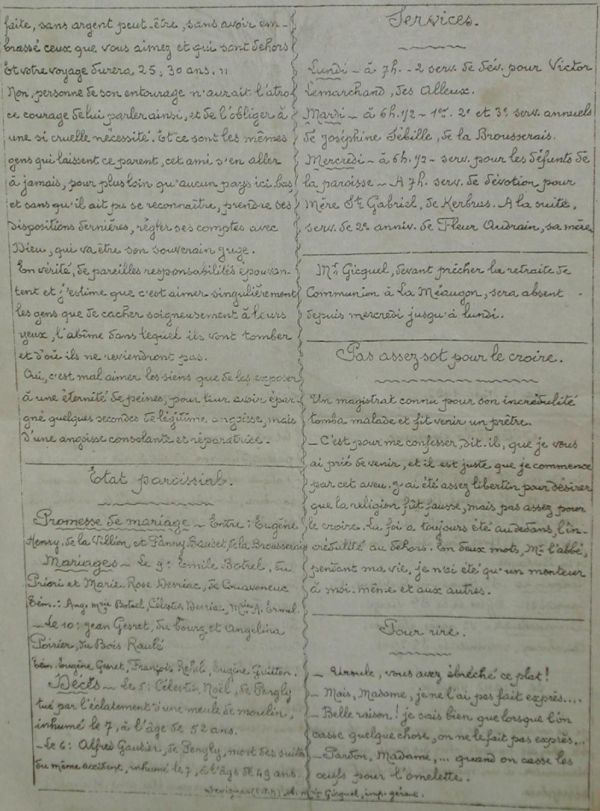 faite, sans argent peut-être, sans avoir em-
brassé ceux que vous aimez et qui sont dehors
Et votre voyage durera 25, 30 ans. "
Non, personne de son entourage n'aurait l'atro
ce courage de lui parler ainsi, et de l'obliger à
une si cruelle nécessité. Et ce sont les mêmes
gens qui laissent ce parent, cet ami s'en aller
à jamais, pour plus loin qu'aucun pays ici bas
et sans qu'il ait pu se reconnaître, prendre ses
dispositions dernières, régler ses comptes avec
Dieu, qui va être son souverain juge.
En vérité, de pareilles responsabilités épouvan-
tent et j'estime que c'est aimer singulièrement
les gens que de cacher soigneusement à leurs
yeux, l'abîme dans lequel ils vont tomber
et d'où ils ne reviendront pas.
Oui, c'est mal aimer les siens que de les exposer
à une éternité de peines, pour leur avoir épar-
gné quelques secondes de légitime angoisse, mais
d'une angoisse consolante et réparatrice.
Etat paroissial.
Promesse de mariage - Entre: Eugène
Henry, de la Villion et Fanny Baudet, de la Brousserais
Mariages - Le 9: Emile Botrel, du
Priori et Marie Rose Derriac, de
Tém: Ange Mie Botrel, Célestin Derriac,
- Le 10: Jean Gesret, du bourg et Angelina
Poirier, du Bois Raulé
Tém. Eugène Gesret, François Rehel, Eugène
Décès - Le 5: Célestin Noël, de Pengly
tué par l'éclatement d'une meule de moulin,
inhumé le 7, à l'âge de 52 ans.
- Le 6: Alfred Gautier, de Pengly, mort des suites
du même accident, inhumé le 7, à l'âge de 49 ans.
Services.
Lundi - à 7h. - 2 serv. de dév. pour Victor
Lemarchand, des Alleux.
Mardi - à 6h.1/2 - 1er. 2e et 3e serv. annuels
de Joséphine Sébille, de la Brousserais.
Mercredi - à 6h.1/2 - serv. pour les défunts de
la paroisse - A 7h. serv. de dévotion pour
Mère St Gabriel, de Kerbrus. A la suite,
serv. de 2e anniv. de Fleur Audrain, sa mère
Mr Gicquel, devant prêcher la retraite de
Communion à La Méaugon, sera absent
depuis mercredi jusqu'à lundi.
Pas assez sot pour le croire.
Un magistrat connu pour son incrédulité
tomba malade et fit venir un prêtre.
- C'est pour me confesser, dit-il, que je vous
ai prié de venir, et il est juste que je commence
par cet aveu. J'ai été assez libertin pour désirer
que la religion fût fausse, mais pas assez pour
le croire. La foi a toujours été au dedans, l'in-
crédulité au dehors. En deux mots, Mr l'abbé,
pendant ma vie, je n'ai été qu'un menteur
à moi-même et aux autres.
Pour rire.
- Ursule, vous avez ébréché ce plat!
- Mais, Madame, je ne l'ai pas fait exprès....
- Belle raison! je sais bien que lorsque l'on
casse quelque chose, on ne le fait pas exprès...
- Pardon, Madame,... quand on casse les
œufs pour l'omelette.
Gicquel, imp. gérant.